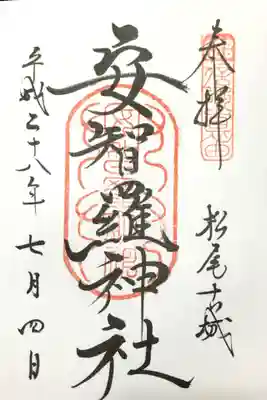 奉拝
松尾古城
安智羅神社
平成二十八年七月四日